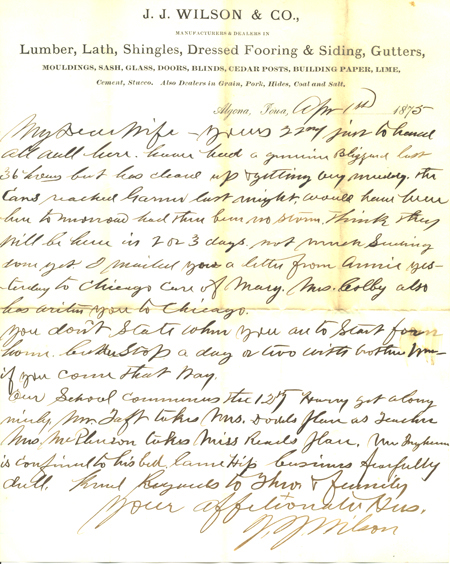 J. J. WILSON & CO.,
MANUFACTURERS & DEALERS IN
Lumber, Lath, Shingles, Dressed Fooring & Siding, Gutters,
MOULDINGS, SASH, GLASS, DOORS, BLINDS, CEDAR POSTS, BUILDING PAPER, LIME,
Cement, Stucco. Also Dealers in Grain, Pork, Hides, Coal and Salt.
Algona, Iowa, Apr 1st 1875
My Dear Wife - yours 27 just to hand
all well here. have had a genuine Blizzard last
36 hours but has cleared up & getting very muddy. the
Cars reached Garner last night, would have been
here to morrow had there been no storm. think they
will be here in 2 or 3 days, not much
yet I mailed you a letter from Annie yes-
terday to Chicago care of Mary. Mrs. Colby also
has written you to Chicago.
you don't State when you are to Start for
home. better Stop a day or two with brother Wm
if you come that Way.
Our School commences the 12th Harry get along
nicely Mr Taft takes Mrs. Dodds place as Teacher
Mrs. McPherson takes Miss Reeds place. Mr Ingham
is confined to his bed, Lame Hip business fearfully
dull. Kind Regards to Thos & family
your affectionate Hus.
J. J. Wilson